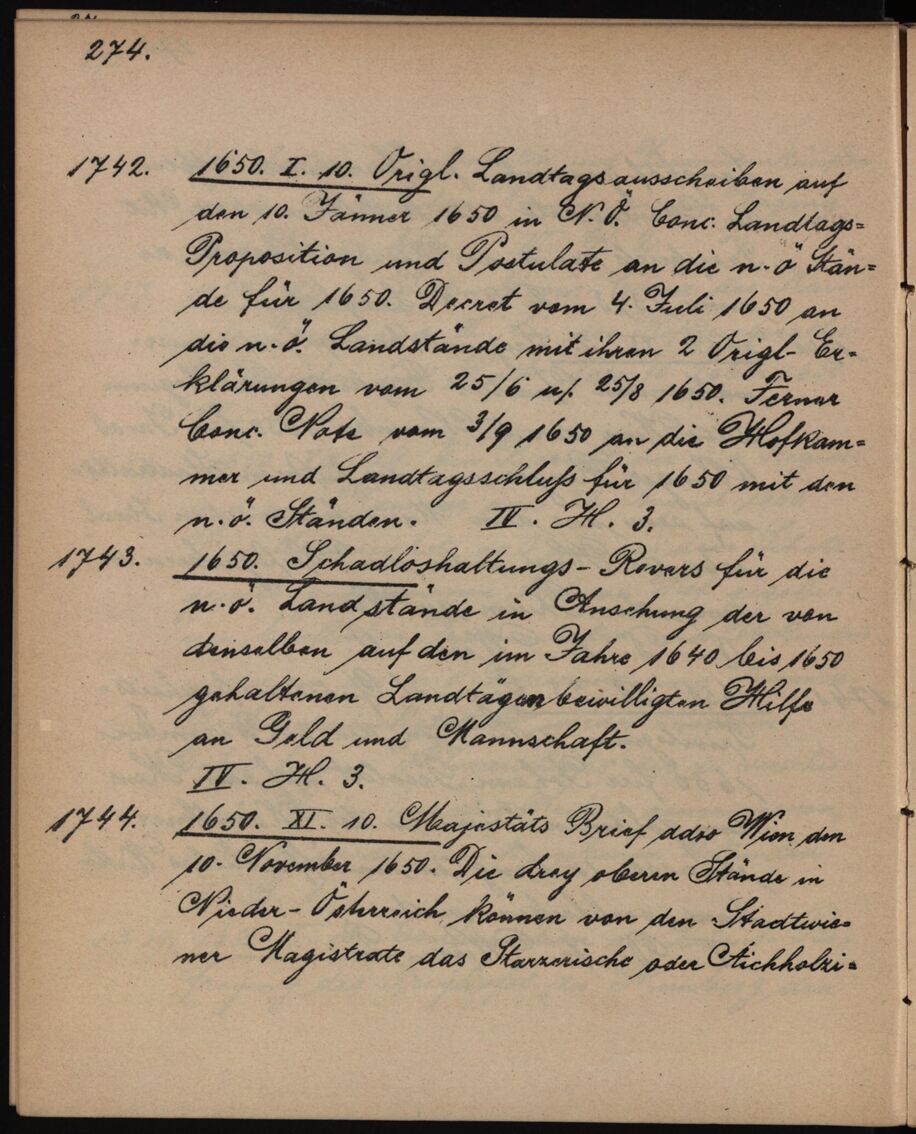 274.
1742. 1650. I. 10. Origl. Landtagsausscheiben auf
den 10. Jänner 1650 in N.Ö. Conc. Landtags=
Proposition und Postulate an die n.ö Stän=
de für 1650. Decret vom 4. Juli 1650 an
die n.ö. Landstände mit ihren 2 Origl- Er=
klärungen vom 25/6 u/. 25/8 1650. Ferner
Conc. Note vom 3/9 1650 an die Hofkam=
mer und Landtagsschluß für 1650 mit den
n.ö. Ständen. IV. H. 3.
1743. 1650. Schadloshaltungs-Revers für die
n.ö. Landstände in Ansehung der von
denselben auf den im Jahre 1640 bis 1650
gehaltenen Landtägen bewilligten Hilfe
an Geld und Mannschaft.
IV. H. 3.
1744. 1650. XI. 10. Majestäts Brief ddto Wien den
10. November 1650. Die drey oberen Stände in
Nieder-Österreich können von den Stadtwie=
ner Magistrate das Starzerische oder Aichholzi=